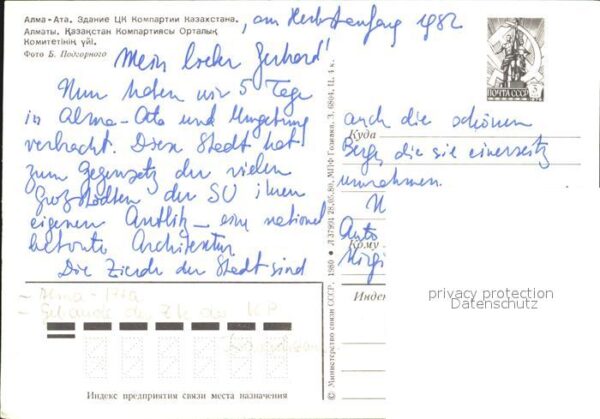 Алма-Ата. Здание ЦК Компартии Казахстана.
Алматы. Қазақстан Компартиясы Орталық
Комитетінің үйі.
Фото Б. Подгорного
, am Herbstanfang 1982
Mein lieber Gerhard!
Nun haben wir 5 Tage
in Alma-Ata und Umgebung
verbracht. Diese Stadt hat
zum Gegensatz der vielen
Großstädten der SU ihren
eigenen Antlitz – eine national
betonte Architektur
Die Zierde der Stadt sind
auch die schönen
Berge, die sie einerseitz
umrahmen.
Auto
ПОЧТА СССР
3
Куда
Кому
Индекс
© Министерство связи СССР. 1980
28.05.80. МПФ Гознака. З.
– Alma-Ata
– Gebäude des ZK der KP
Индекс предприятия связи места назначения
privacy protection
Datenschutz